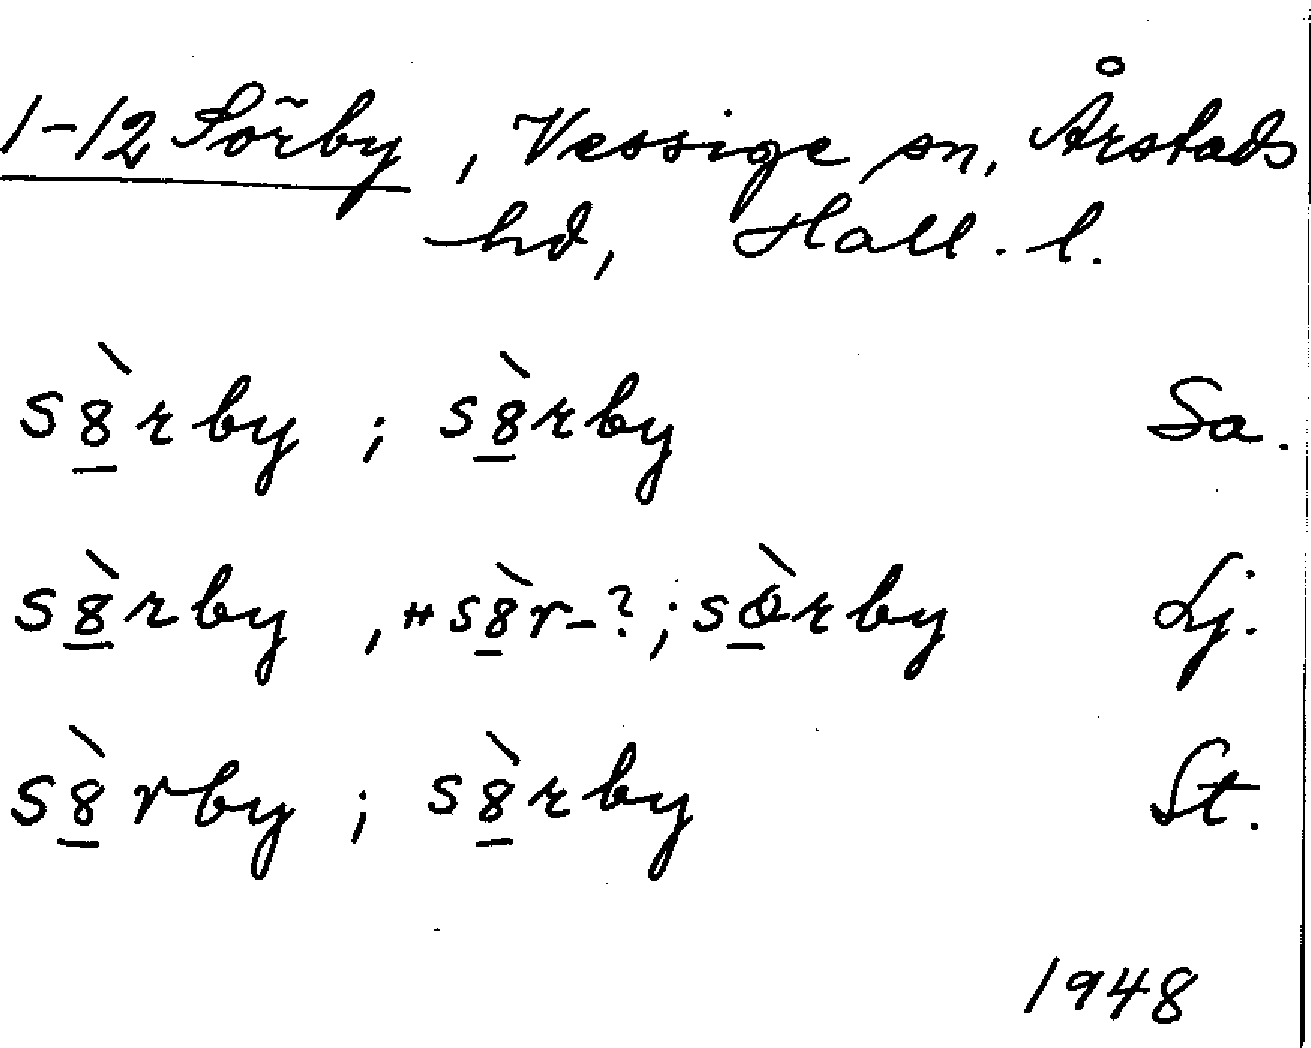 1-12 Sörby, Vessige sn, Årstads
hd, Hall. l.
s8̲̀rby ; s8̲̀rby Sa.
s8̲̀rby, "s8̲̀r-?; sò̲rby Lj.
s8̲̀rby ; s8̲̀rby St.
1948